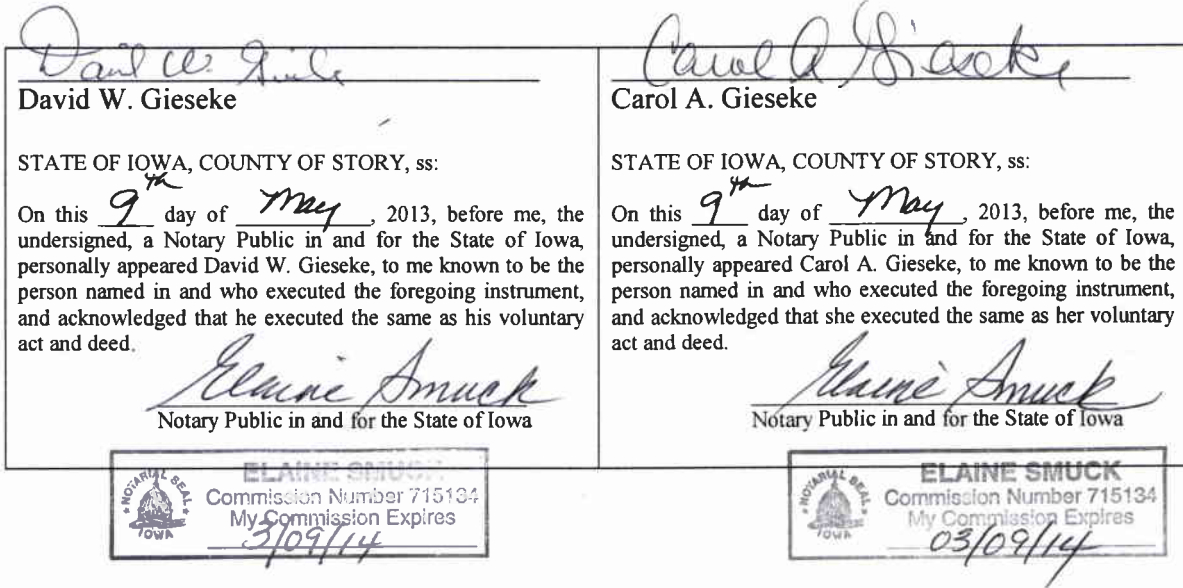 David W. Gieseke
David W. Gieseke
STATE OF IOWA, COUNTY OF STORY, ss:
On this 9th day of May, 2013, before me, the
undersigned, a Notary Public in and for the State of Iowa,
personally appeared David W. Gieseke, to me known to be the
person named in and who executed the foregoing instrument,
and acknowledged that he executed the same as his voluntary
act and deed.
Elaine Smuck
Notary Public in and for the State of Iowa
NOTARIAL SEAL
IOWA
ELAINE SMUCK
Commission Number 715134
My Commission Expires
3/09/14
Carol A Gieseke
Carol A. Gieseke
STATE OF IOWA, COUNTY OF STORY, ss:
On this 9th day of May, 2013, before me, the
undersigned, a Notary Public in and for the State of Iowa,
personally appeared Carol A. Gieseke, to me known to be the
person named in and who executed the foregoing instrument,
and acknowledged that she executed the same as her voluntary
act and deed.
Elaine Smuck
Notary Public in and for the State of Iowa
NOTARIAL SEAL
IOWA
ELAINE SMUCK
Commission Number 715134
My Commission Expires
03/09/14